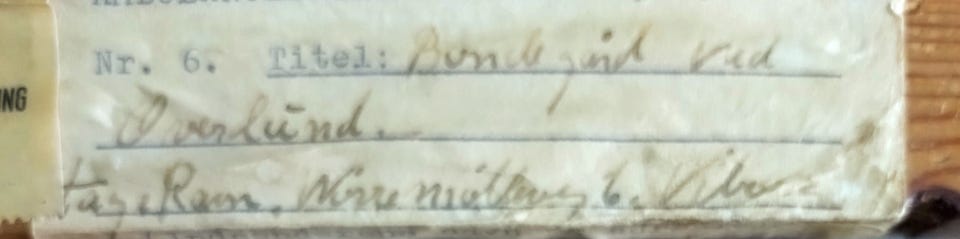 NG
Nr. 6. Titel: Bondegård ved
Overlund.
Tage Ravn, Nørremøllevej 6. Viborg